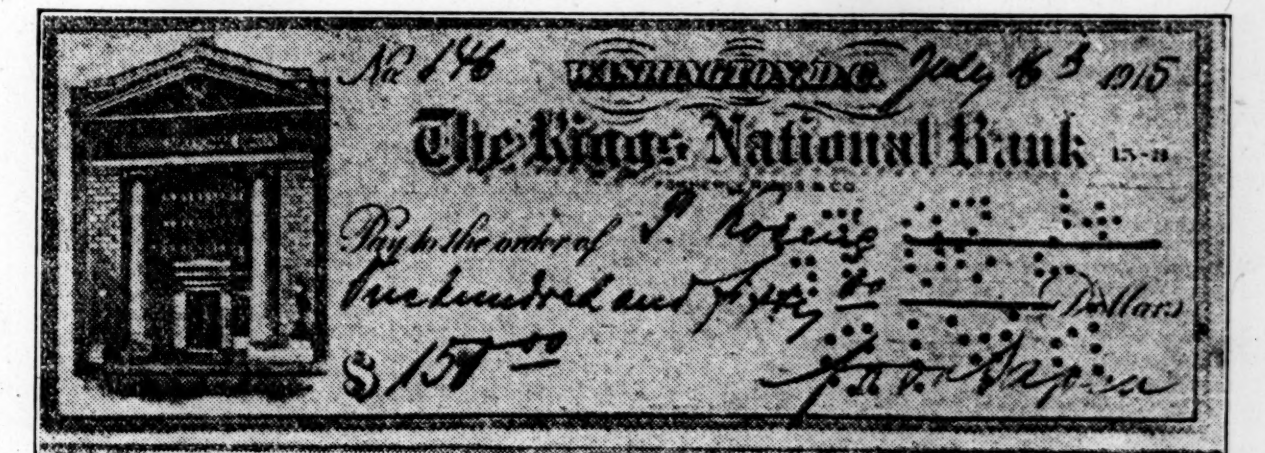 No. 146 WASHINGTON, D.C. July 16 1915
The Riggs National Bank 15-3
& CO.
Pay to the order of P.
One hundred and Fifty 00 Dollars
$ 150 00